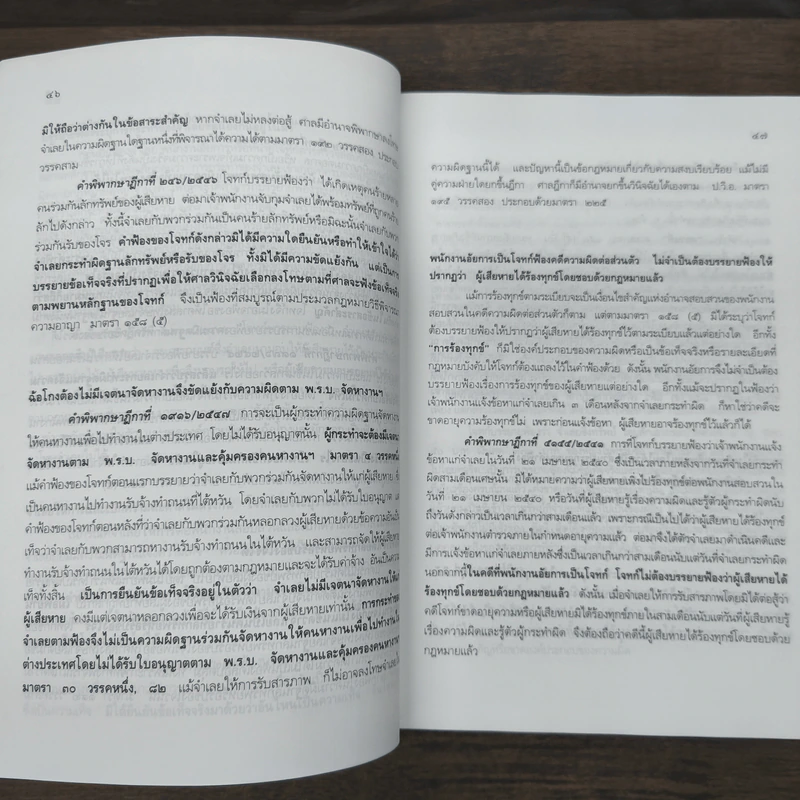 ๔๖
มิให้ถือว่าต่างกันในข้อสาระสำคัญ หากจำเลยไม่หลงต่อสู้ ศาลมีอำนาจพิพากษาลงโทษ
จำเลยในความผิดฐานใดฐานหนึ่งที่พิจารณาได้ความได้ตามมาตรา ๑๙๒ วรรคสอง ประกอบ
วรรคสาม
คำพิพากษาฎีกาที่ ๒๔๖/๒๕๔๖ โจทก์บรรยายฟ้องว่า ได้เกิดเหตุคนร้าย
คนร่วมกันลักทรัพย์ของผู้เสียหาย ต่อมาเจ้าพนักงานจับกุมจำเลยได้พร้อมทรัพย์ที่ถูกคนร้าย
ลักไปดังกล่าว ทั้งนี้จำเลยกับพวกร่วมกันเป็นคนร้ายลักทรัพย์หรือมิฉะนั้นจำเลยกับพวก
ร่วมกันรับของโจร คำฟ้องของโจทก์ดังกล่าวมิได้มีความใดยืนยันหรือทำให้เข้าใจได้ว่า
จำเลยกระทำผิดฐานลักทรัพย์หรือรับของโจร ทั้งมิได้มีความขัดแย้งกัน แต่เป็นการ
บรรยายข้อเท็จจริงที่ปรากฏเพื่อให้ศาลวินิจฉัยเลือกลงโทษตามที่ศาลจะฟังข้อเท็จจริง
ตามพยานหลักฐานของโจทก์ จึงเป็นฟ้องที่สมบูรณ์ตามประมวลกฎหมายวิธีพิจารณา
ความอาญา มาตรา ๑๕๘ (๕)
ฉ้อโกงต้องไม่มีเจตนาจัดหางานจึงขัดแย้งกับความผิดตาม พ.ร.บ. จัดหางานฯ
คำพิพากษาฎีกาที่ ๑๙๑๖/๒๕๔๗ การจะเป็นผู้กระทำความผิดฐานจัดหางาน
ให้คนหางานเพื่อไปทำงานในต่างประเทศ โดยไม่ได้รับอนุญาตนั้น ผู้กระทำจะต้องมีเจตนา
จัดหางานตาม พ.ร.บ. จัดหางานและคุ้มครองคนหางานฯ มาตรา ๔ วรรคหนึ่ง
แม้คำฟ้องของโจทก์ตอนแรกบรรยายว่าจำเลยกับพวกร่วมกันจัดหางานให้แก่ผู้เสียหาย
เป็นคนหางานไปทำงานรับจ้างทำถนนที่ไต้หวัน โดยจำเลยกับพวกไม่ได้รับใบอนุญาต แต่
คำฟ้องของโจทก์ตอนหลังที่ว่าจำเลยกับพวกร่วมกันหลอกลวงผู้เสียหายด้วยข้อความอันเป็น
เท็จว่าจำเลยกับพวกสามารถหางานรับจ้างทำถนนในไต้หวัน และสามารถจัดให้ผู้เสียหาย
ทำงานรับจ้างทำถนนในไต้หวันได้โดยถูกต้องตามกฎหมายและจะได้รับค่าจ้าง อันเป็นความ
เท็จทั้งสิ้น เป็นการยืนยันข้อเท็จจริงอยู่ในตัวว่า จำเลยไม่มีเจตนาจัดหางานให้แก่
ผู้เสียหาย คงมีแต่เจตนาหลอกลวงเพื่อจะได้รับเงินจากผู้เสียหายเท่านั้น การกระทำของ
จำเลยตามฟ้องจึงไม่เป็นความผิดฐานร่วมกันจัดหางานให้คนหางานเพื่อไปทำงานใน
ต่างประเทศโดยไม่ได้รับใบอนุญาตตาม พ.ร.บ. จัดหางานและคุ้มครองคนหางานฯ
มาตรา ๓๐ วรรคหนึ่ง, ๘๒ แม้จำเลยให้การรับสารภาพ ก็ไม่อาจลงโทษจำเลย
๔๗
ความผิดฐานนี้ได้ และปัญหานี้เป็นข้อกฎหมายเกี่ยวกับความสงบเรียบร้อย แม้ไม่มี
คู่ความฝ่ายใดยกขึ้นฎีกา ศาลฎีกาก็มีอำนาจยกขึ้นวินิจฉัยได้เองตาม ป.วิ.อ. มาตรา
๑๙๕ วรรคสอง ประกอบด้วยมาตรา ๒๒๕
พนักงานอัยการเป็นโจทก์ฟ้องคดีความผิดต่อส่วนตัว ไม่จำเป็นต้องบรรยายฟ้องให้
ปรากฏว่า ผู้เสียหายได้ร้องทุกข์โดยชอบด้วยกฎหมายแล้ว
แม้การร้องทุกข์ตามระเบียบจะเป็นเงื่อนไขสำคัญแห่งอำนาจสอบสวนของพนักงาน
สอบสวนในคดีความผิดต่อส่วนตัวก็ตาม แต่ตามมาตรา ๑๕๘ (๕) มิได้ระบุว่าโจทก์
ต้องบรรยายฟ้องให้ปรากฏว่าผู้เสียหายได้ร้องทุกข์ไว้ตามระเบียบแล้วแต่อย่างใด อีกทั้ง
“การร้องทุกข์” ก็มิใช่องค์ประกอบของความผิดหรือเป็นข้อเท็จจริงหรือรายละเอียดที่
กฎหมายบังคับให้โจทก์ต้องแถลงไว้ในคำฟ้องด้วย ดังนั้น พนักงานอัยการจึงไม่จำเป็นต้อง
บรรยายฟ้องเรื่องการร้องทุกข์ของผู้เสียหายแต่อย่างใด อีกทั้งแม้จะปรากฏในฟ้องว่า
เจ้าพนักงานแจ้งข้อหาแก่จำเลยเกิน ๓ เดือนหลังจากจำเลยกระทำผิด ก็หาใช่ว่าคดีจะ
ขาดอายุความร้องทุกข์ไม่ เพราะก่อนแจ้งข้อหา ผู้เสียหายอาจร้องทุกข์ไว้แล้วก็ได้
คำพิพากษาฎีกาที่ ๕๑๕๕/๒๕๔๑ การที่โจทก์บรรยายฟ้องว่าเจ้าพนักงานแจ้ง
ข้อหาแก่จำเลยในวันที่ ๒๑ เมษายน ๒๕๔๐ ซึ่งเป็นเวลาภายหลังจากวันที่จำเลยกระทำผิด
สามเดือนเศษนั้น มิได้หมายความว่าผู้เสียหายเพิ่งไปร้องทุกข์ต่อพนักงานสอบสวนใน
วันที่ ๒๑ เมษายน ๒๕๔๐ หรือวันที่ผู้เสียหายรู้เรื่องความผิดและรู้ตัวผู้กระทำผิดนับ
ถึงวันดังกล่าวเป็นเวลาเกินกว่าสามเดือนแล้ว เพราะกรณีเป็นไปได้ว่าผู้เสียหายได้ร้องทุกข์
ต่อเจ้าพนักงานตำรวจภายในกำหนดอายุความแล้ว ต่อมาจึงได้ตัวจำเลยมาดำเนินคดีและ
มีการแจ้งข้อหาแก่จำเลยภายหลังซึ่งเป็นเวลาเกินกว่าสามเดือนนับแต่วันที่จำเลยกระทำผิด
นอกจากนี้ในคดีที่พนักงานอัยการเป็นโจทก์ โจทก์ไม่ต้องบรรยายฟ้องว่าผู้เสียหายได้
ร้องทุกข์โดยชอบด้วยกฎหมายแล้ว ดังนั้น เมื่อจำเลยให้การรับสารภาพโดยมิได้ต่อสู้ว่า
คดีโจทก์ขาดอายุความหรือผู้เสียหายมิได้ร้องทุกข์ภายในสามเดือนนับแต่วันที่ผู้เสียหายรู้
เรื่องความผิดและรู้ตัวผู้กระทำผิด จึงต้องถือว่าคดีนี้ผู้เสียหายได้ร้องทุกข์โดยชอบด้วย
กฎหมายแล้ว